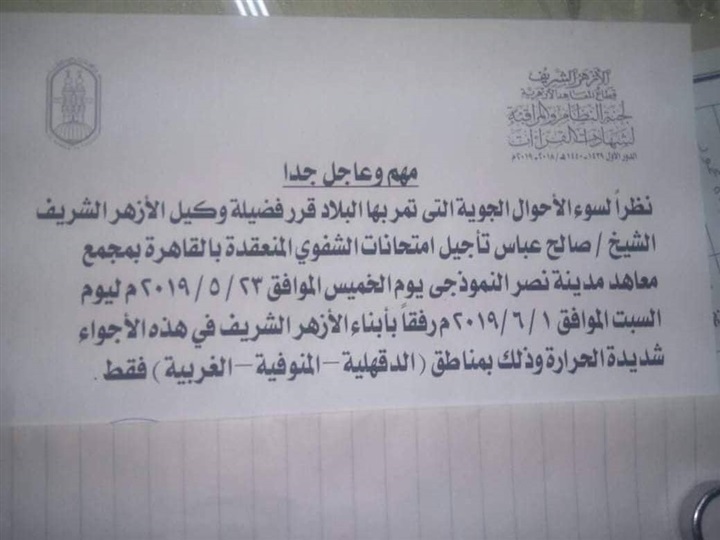 الأزهر الشريف
قطاع المعاهد الأزهرية
لجنة النظام والمراقبة
لشهادات القراءات
الدور الأول ١٤٣٩-١٤٤٠هـ / ٢٠١٨-٢٠١٩م
مهم وعاجل جدا
نظراً لسوء الأحوال الجوية التى تمر بها البلاد قرر فضيلة وكيل الأزهر الشريف
الشيخ / صالح عباس تأجيل امتحانات الشفوي المنعقدة بالقاهرة بمجمع
معاهد مدينة نصر النموذجى يوم الخميس الموافق ٢٣ / ٥ / ٢٠١٩ م ليوم
السبت الموافق ١ / ٦ / ٢٠١٩ م رفقاً بأبناء الأزهر الشريف في هذه الأجواء
شديدة الحرارة وذلك بمناطق ( الدقهلية – المنوفية – الغربية ) فقط .